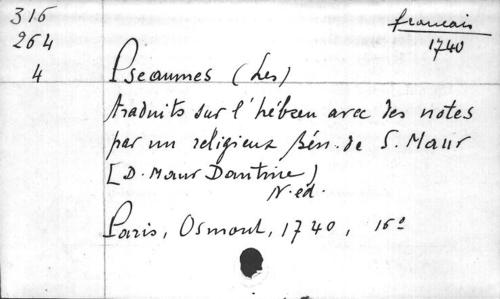 316
264
4
francais
1740
Pseaumes (Les)
traduits sur l'hébreu avec des notes
par un religieux Bén. de S. Maur
[D. Maur Dantine)
N. éd.
Paris, Osmont, 1740, 16º